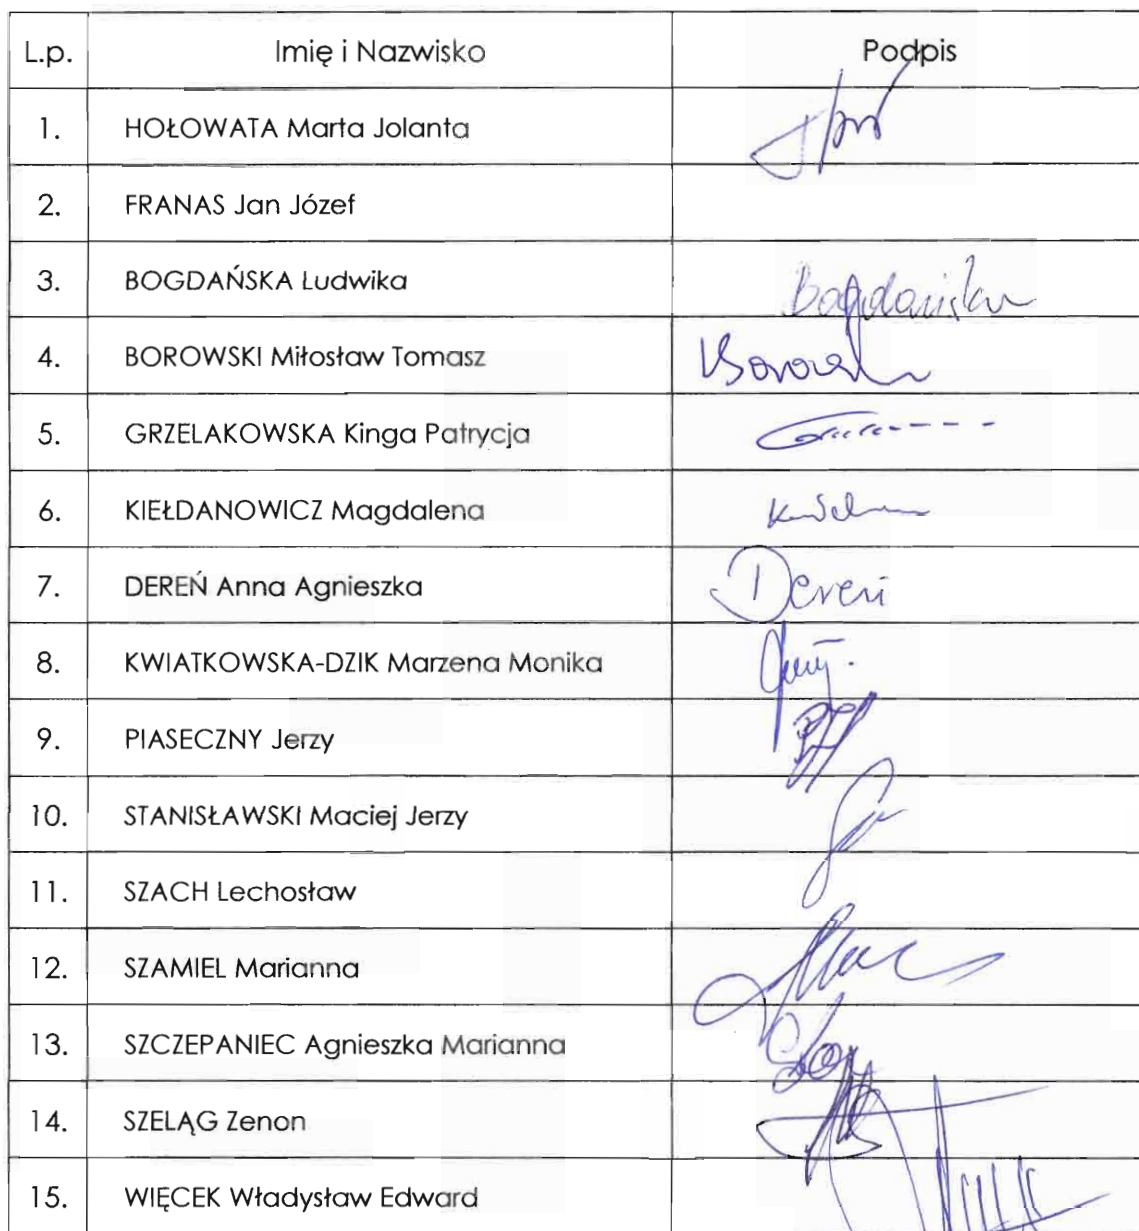 L.p. Imię i Nazwisko Podpis
1. HOŁOWATA Marta Jolanta
2. FRANAS Jan Józef
3. BOGDAŃSKA Ludwika Bogdańska
4. BOROWSKI Miłosław Tomasz Borowski
5. GRZELAKOWSKA Kinga Patrycja
6. KIEŁDANOWICZ Magdalena
7. DEREŃ Anna Agnieszka Dereń
8. KWIATKOWSKA-DZIK Marzena Monika
9. PIASECZNY Jerzy
10. STANISŁAWSKI Maciej Jerzy
11. SZACH Lechosław
12. SZAMIEL Marianna
13. SZCZEPANIEC Agnieszka Marianna
14. SZELĄG Zenon
15. WIĘCEK Władysław Edward